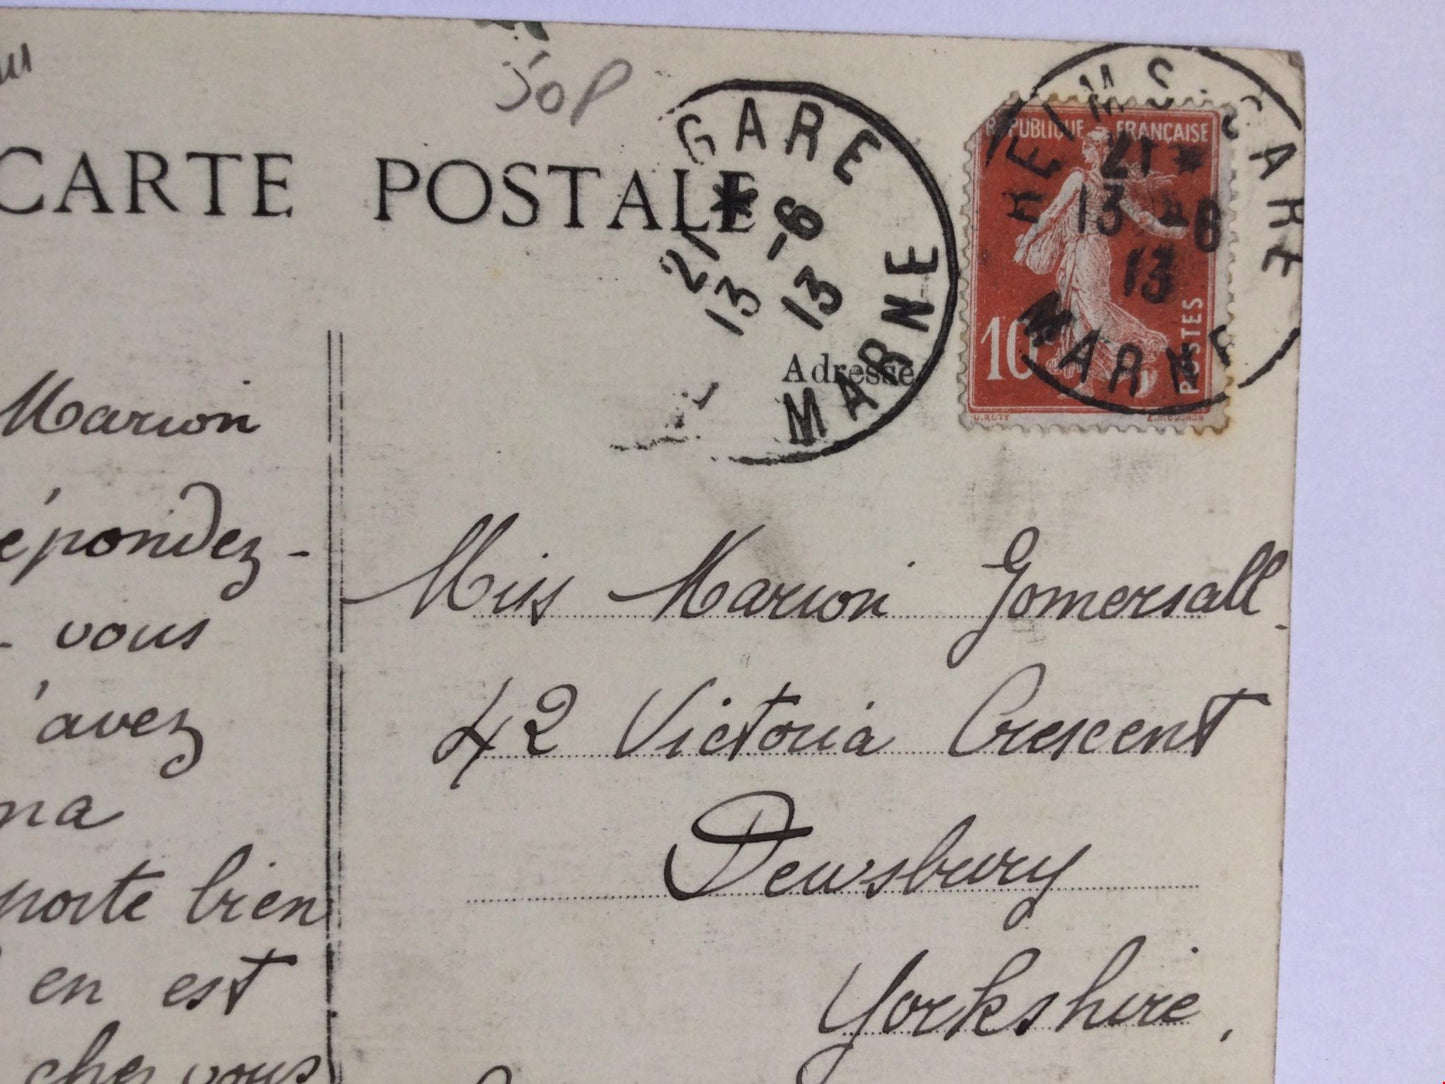 50P
CARTE POSTALE
GARE
21 *
13 -6
13
MARNE
REIMS GARE
21 *
13 -6
13
MARNE
REPUBLIQUE FRANÇAISE
10
POSTES
O.ROTY
E.MOUCHON
Adresse
Marion
épondez-
- vous
'avez
ma
porte bien
en est
chez vous
Miss Marion Gomersall
42 Victoria Crescent
Dewsbury
Yorkshire,